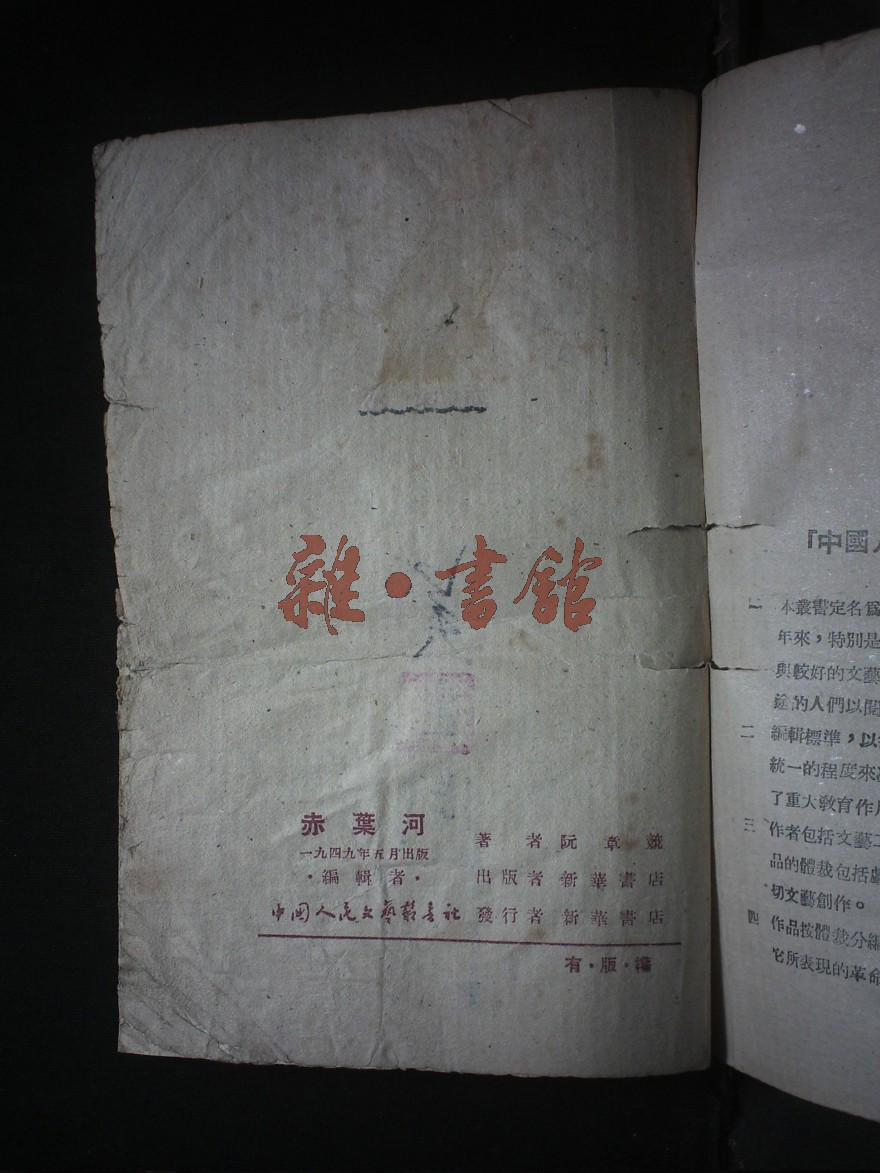 雜·書館
赤葉河
一九四九年五月出版
·編輯者·
中国人民文藝叢書社
著者阮章競
出版者新華書店
發行者新華書店
有·版·權
『中國人
一 本叢書定名爲
年來，特別是
與較好的文藝
途的人們以閱
二 編輯標準，以
統一的程度來
了重大敎育作用
三 作者包括文藝工
品的體裁包括
切文藝創作。
四 作品按體裁分編
它所表現的革命